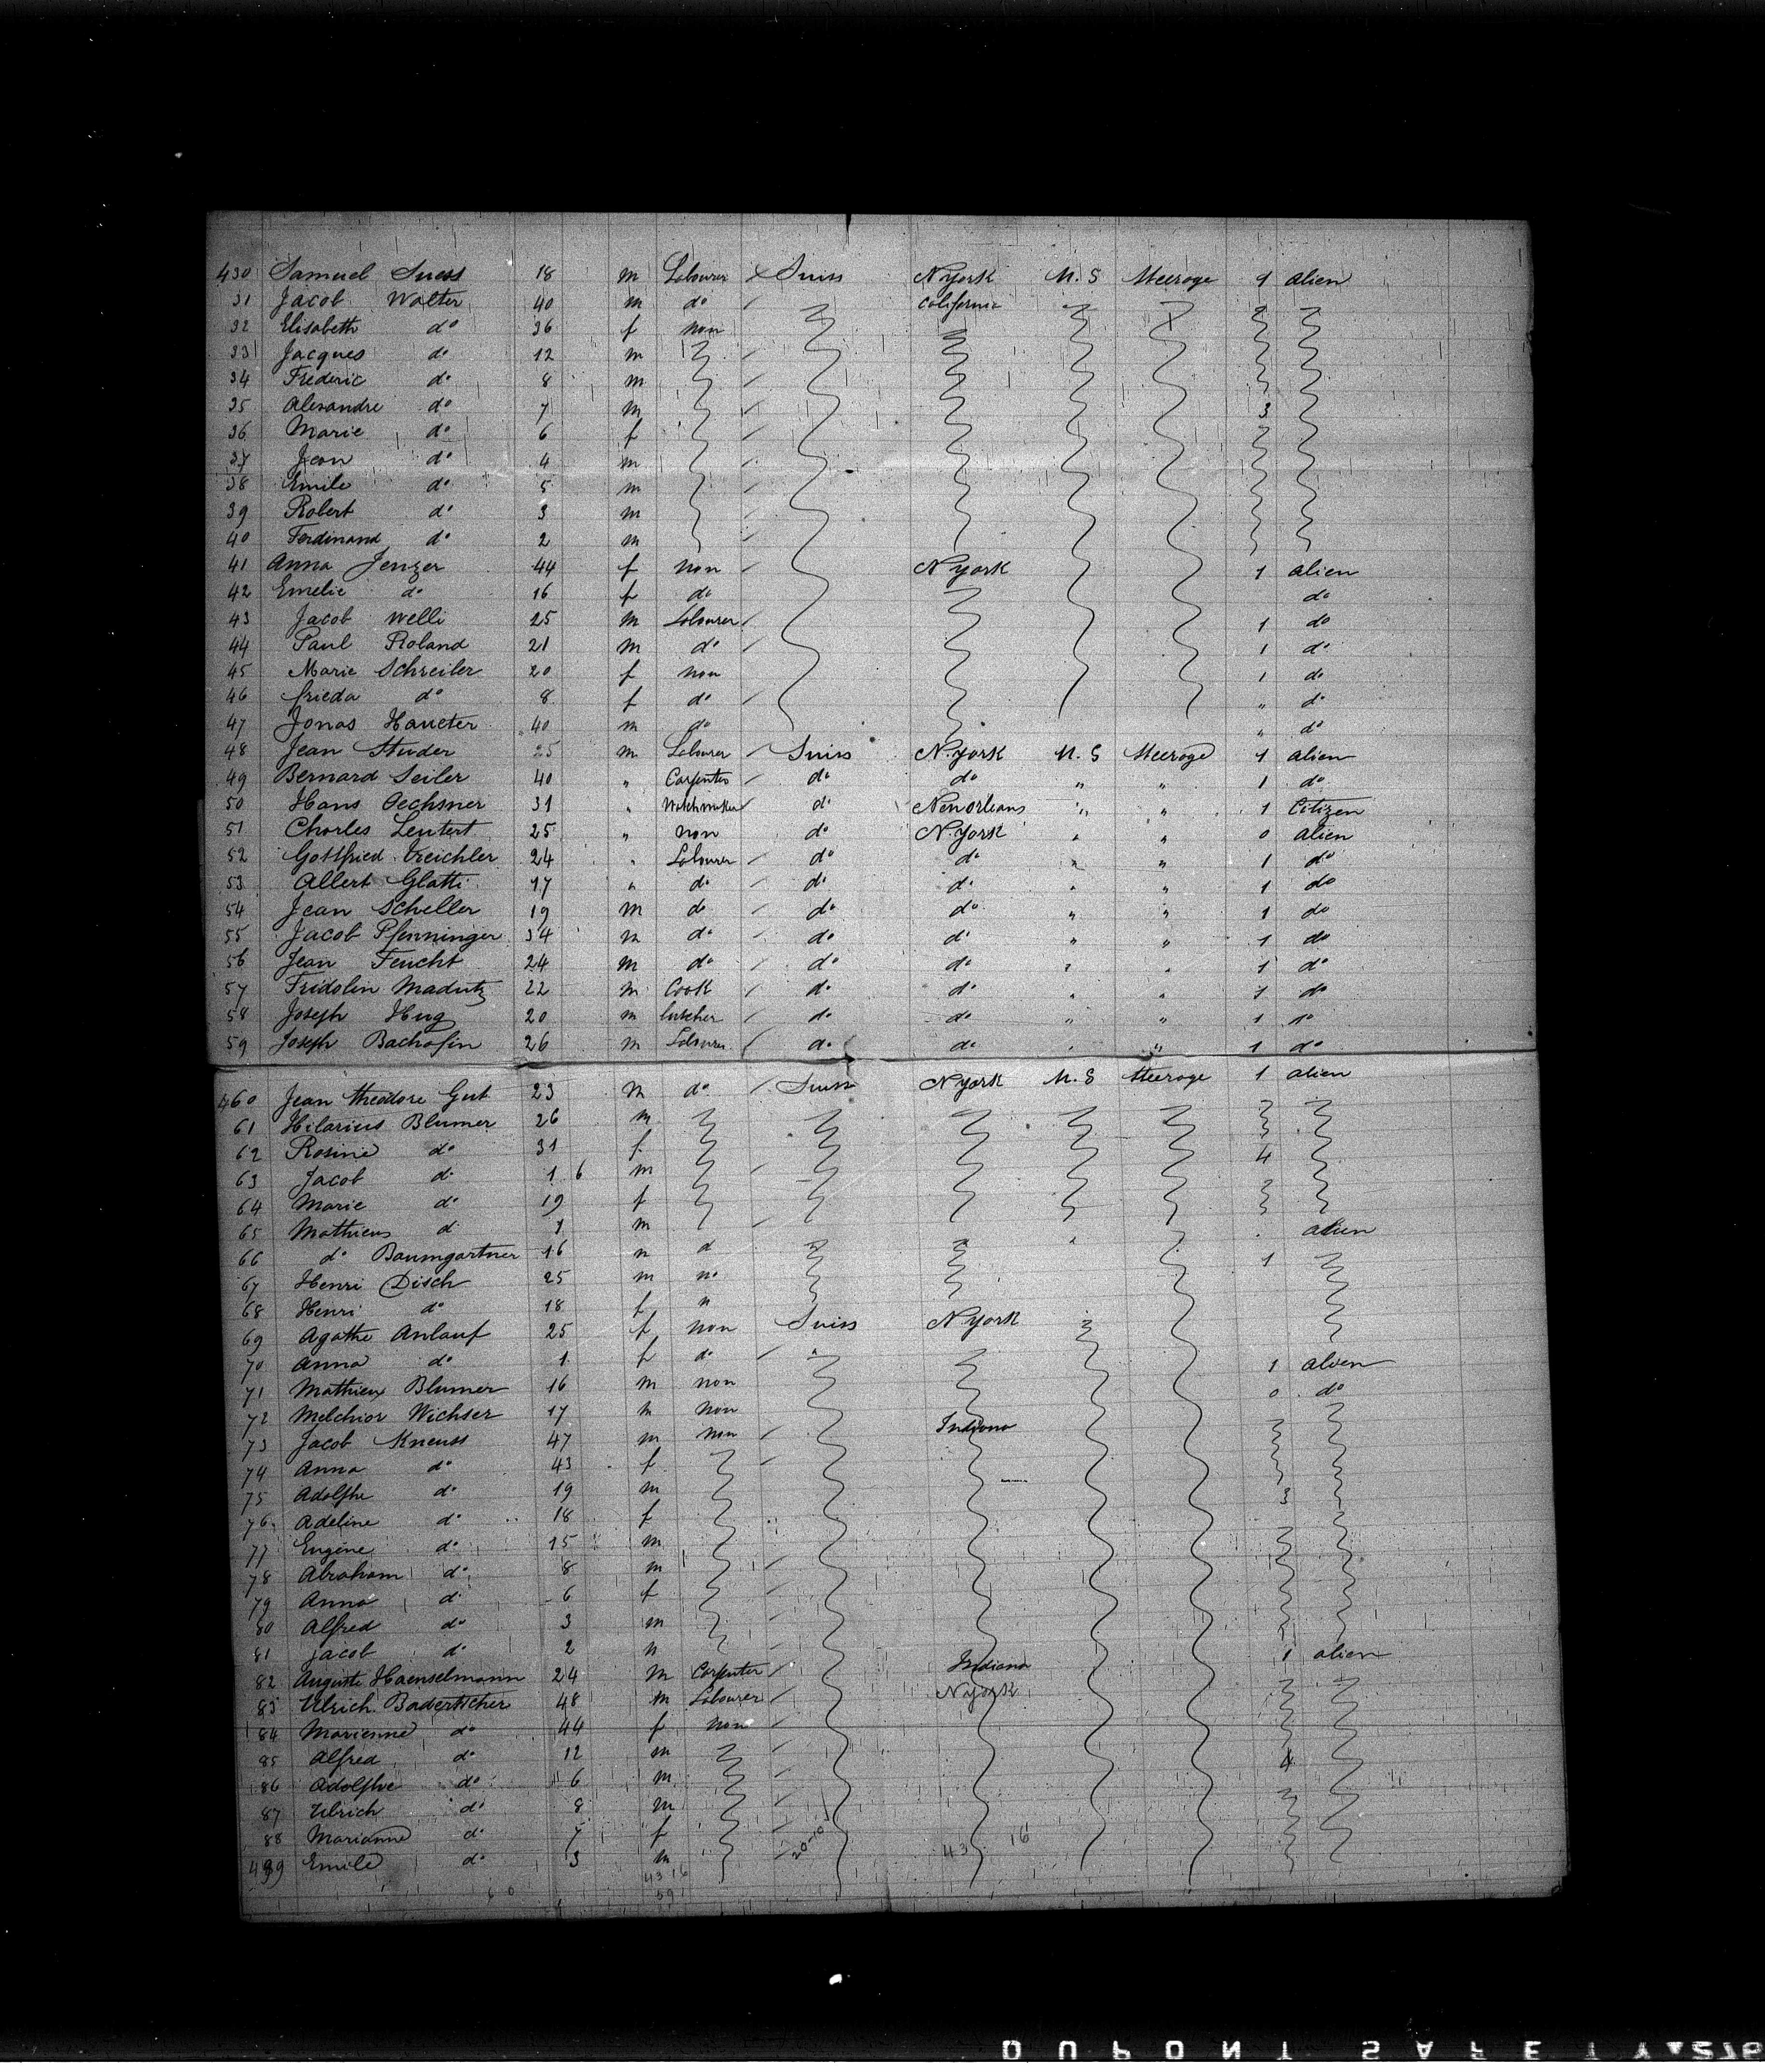 430 Samuel Suess 18 m Labourer Suiss N York U. S Steerage 1 alien
31 Jacob Walter 40 m do California
32 Elisabeth do 36 f non
33 Jacques do 12 m
34 Frederic do 8 m
35 Alexandre do 7 m 3
36 Marie do 6 f
37 Jean do 4 m
38 Emile do 5 m
39 Robert do 3 m
40 Ferdinand do 2 m
41 Anna Jenzer 44 f non N York 1 alien
42 Emelie do 16 f do do
43 Jacob Welli 25 m Labourer 1 do
44 Paul Roland 21 m do 1 do
45 Marie Schreiler 20 f non 1 do
46 frieda do 8 f do " do
47 Jonas Haueter 40 m do " do
48 Jean Studer 25 m Labourer Suiss N. York U. S Steerage 1 alien
49 Bernard Seiler 40 " Carpenter do do " " 1 do
50 Hans Oechsner 31 " Watchmaker do Neworleans " " 1 Citizen
51 Charles Leutert 25 " non do N. York " " 0 alien
52 Gottfried Treichler 24 " Labourer do do " " 1 do
53 Albert Glatti 17 " do do do " " 1 do
54 Jean Scheller 19 m do do do " " 1 do
55 Jacob Pfenninger 34 m do do do " " 1 do
56 Jean Feucht 24 m do do do " " 1 do
57 Fridolin Madutz 22 m Cook do do " " 1 do
58 Joseph Hug 20 m butcher do do " " 1 do
59 Joseph Bachofin 26 m Labourer do do " " 1 do
460 Jean Theodore Gut 23 m do Suiss N York U. S Steerage 1 alien
61 Hilarius Blumer 26 m
62 Rosine do 31 f 4
63 Jacob do 1 6 m
64 Marie do 19 f
65 Mathieus d 1 m alien
66 do Baumgartner 16 m d 1
67 Henri Disch 25 m no
68 Henri do 18 f n
69 Agathe Anlauf 25 f non Suiss N York
70 Anna do 1 f do 1 alien
71 Mathieu Blumer 16 m non 0 do
72 Melchior Wichser 17 m non
73 Jacob Kneuss 47 m non Indiana
74 Anna do 43 f
75 Adolphe do 19 m 3
76 Adeline do 18 f
77 Eugene do 15 m
78 Abraham do 8 m
79 Anna d 6 f
80 Alfred do 3 m
81 Jacob d 2 m 1 alien
82 Auguste Haenselmann 24 m Carpenter Indiana
83 Ulrich Badertscher 48 m Labourer N york
84 Marienne do 44 f non
85 Alfred do 12 m 4
86 Adolphe do 6 m
87 Ulrich do 8 m
88 Marianne do 7 f 20-10 43 16
489 Emile do 3 m
43 16
59
DUPONT SAFETY 276